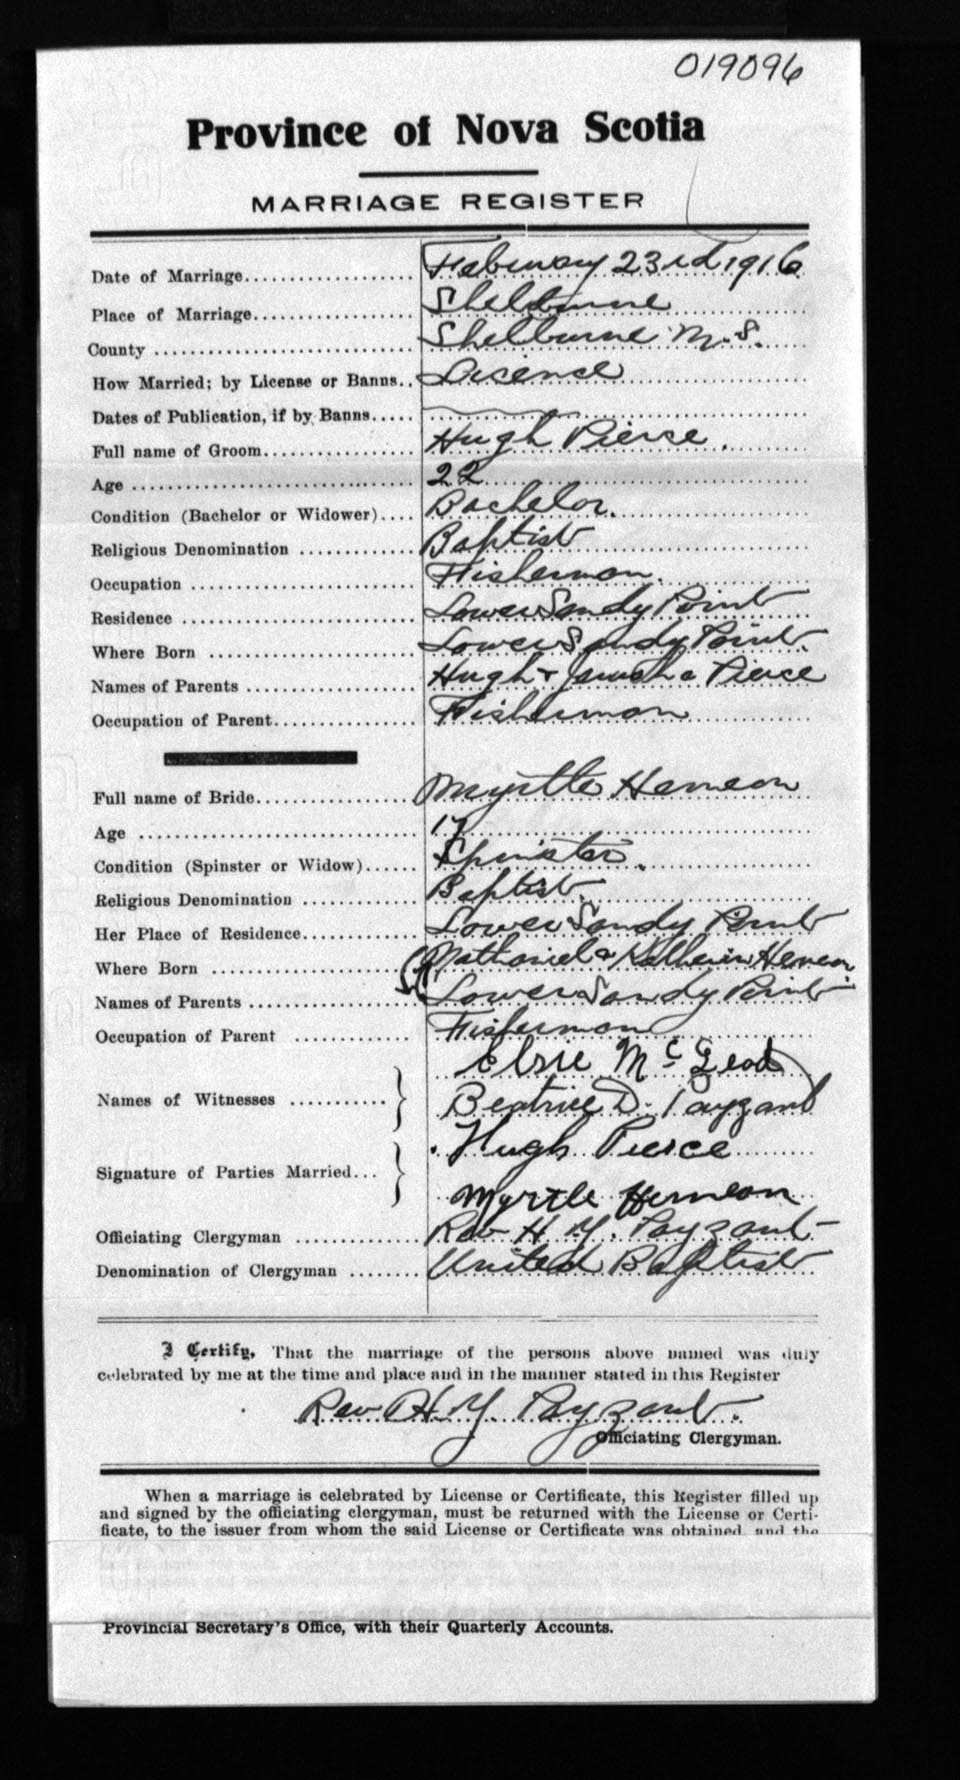 019096
Province of Nova Scotia
MARRIAGE REGISTER
Date of Marriage.................... February 23rd 1916
Place of Marriage................... Shelburne
County .............................. Shelburne N.S.
How Married; by License or Banns.. Lisense
Dates of Publication, if by Banns.....
Full name of Groom.................. Hugh Pierce.
Age .................................. 22
Condition (Bachelor or Widower).... Bachelor.
Religious Denomination ............. Baptist
Occupation .......................... Fisherman.
Residence ........................... Lower Sandy Point
Where Born ......................... Lower Sandy Point.
Names of Parents ................... Hugh & Pierce
Occupation of Parent................. Fisherman
Full name of Bride................... Myrtle Hemeon
Age ................................. 17
Condition (Spinster or Widow)...... Spinster.
Religious Denomination ............. Baptist.
Her Place of Residence............. Lower Sandy Point
Where Born ........................ Nathaniel & Katherin Hemeon.
Names of Parents .................. Lower Sandy Point
Occupation of Parent .............. Fisherman
Names of Witnesses ........... } Elsie McLeod
Beatrice D. Payzant
Signature of Parties Married... } Hugh Pierce
Myrtle Hemeon
Officiating Clergyman .............. Rev H. Y. Payzant
Denomination of Clergyman ........ United Baptist
I Certify, That the marriage of the persons above named was duly
celebrated by me at the time and place and in the manner stated in this Register
Rev H. Y. Payzant.
Officiating Clergyman.
When a marriage is celebrated by License or Certificate, this Register filled up
and signed by the officiating clergyman, must be returned with the License or Certi-
ficate, to the issuer from whom the said License or Certificate was obtained, and the
Provincial Secretary's Office, with their Quarterly Accounts.